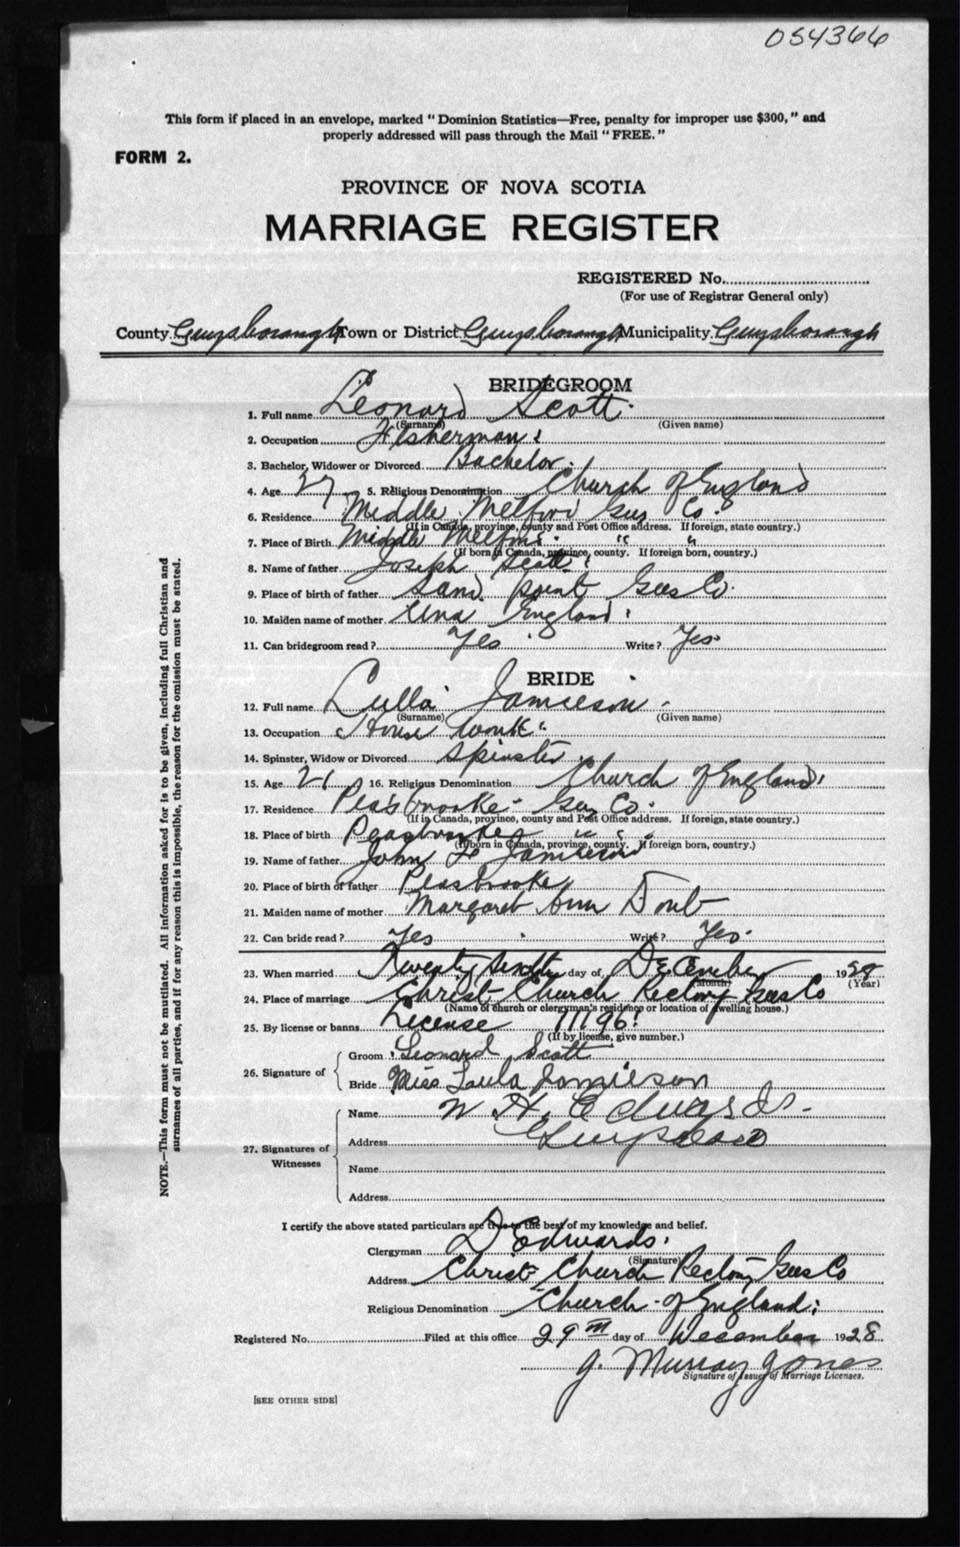 054366
This form if placed in an envelope, marked "Dominion Statistics—Free, penalty for improper use $300," and
properly addressed will pass through the Mail "FREE."
FORM 2.
PROVINCE OF NOVA SCOTIA
MARRIAGE REGISTER
REGISTERED No.
(For use of Registrar General only)
County Guysborough Town or District Guysborough Municipality Guysborough
BRIDEGROOM
1. Full name Leonard Scott
(Surname) (Given name)
2. Occupation Fisherman
3. Bachelor, Widower or Divorced Bachelor
4. Age 27 5. Religious Denomination Church of England
6. Residence Middle Melford Guy Co.
(If in Canada, province, county and Post Office address. If foreign, state country.)
7. Place of Birth Middle Melford " "
(If born in Canada, province, county. If foreign born, country.)
8. Name of father Joseph Scott
9. Place of birth of father Sand point Guys Co.
10. Maiden name of mother England
11. Can bridegroom read? Yes Write? Yes
BRIDE
12. Full name Lulla Jamieson
(Surname) (Given name)
13. Occupation House work
14. Spinster, Widow or Divorced Spinster
15. Age 21 16. Religious Denomination Church of England
17. Residence Peasbrooke - Guy Co.
(If in Canada, province, county and Post Office address. If foreign, state country.)
18. Place of birth Peasbrooke " "
(If born in Canada, province, county. If foreign born, country.)
19. Name of father John Jamieson
20. Place of birth of father Peasbrooke
21. Maiden name of mother Margaret Ann
22. Can bride read? Yes Write? Yes.
23. When married Twenty Sixth day of December 1928
(Month) (Year)
24. Place of marriage Christ Church Rectory Guys Co
(Name of church or clergyman's residence or location of dwelling house.)
25. By license or banns License 11196
(If by license, give number.)
26. Signature of
Groom Leonard Scott
Bride Miss Lula Jamieson
27. Signatures of Witnesses
Name W. H. Edwards
Address
Name
Address
I certify the above stated particulars are true to the best of my knowledge and belief.
Clergyman D Edwards
(Signature)
Address Christ Church Rectory Guys Co
Religious Denomination Church of England
Registered No. Filed at this office 29th day of December 1928
J. Murray Jones
Signature of Issuer of Marriage Licenses.
[SEE OTHER SIDE]
NOTE.—This form must not be mutilated. All information asked for is to be given, including full Christian and
surnames of all parties, and if for any reason this is impossible, the reason for the omission must be stated.